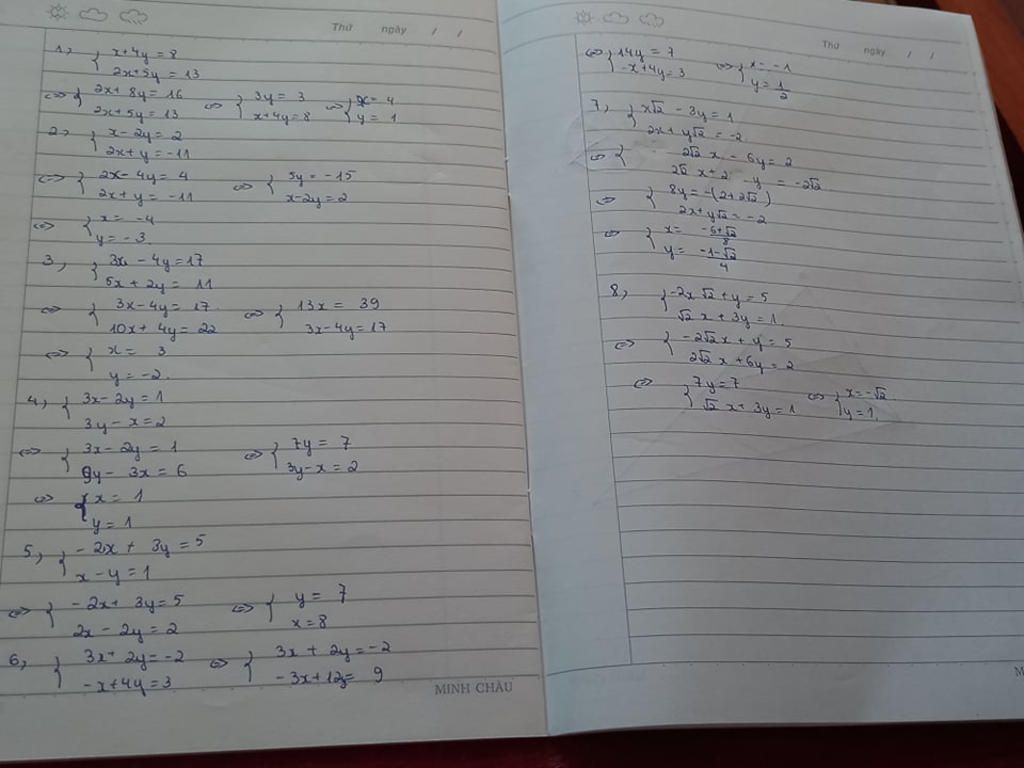 Thứ ngày / /
1, { x+4y = 8
2x+5y = 13
⇔ { 2x+8y = 16 ⇔ { 3y = 3 ⇔ { x = 4
2x+5y = 13 x+4y = 8 y = 1
2, { x-2y = 2
2x+y = -11
⇔ { 2x-4y = 4 ⇔ { 5y = -15
2x+y = -11 x-2y = 2
⇔ { x = -4
y = -3
3, { 3x - 4y = 17
5x + 2y = 11
⇔ { 3x-4y = 17 ⇔ { 13x = 39
10x+4y = 22 3x-4y = 17
⇔ { x = 3
y = -2
4, { 3x-2y = 1
3y-x = 2
⇔ { 3x-2y = 1 ⇔ { 7y = 7
9y-3x = 6 3y-x = 2
⇔ { x = 1
y = 1
5, { -2x + 3y = 5
x-y = 1
⇔ { -2x+3y = 5 ⇔ { y = 7
2x-2y = 2 x = 8
6, { 3x+2y = -2 ⇔ { 3x+2y = -2
-x+4y = 3 -3x+12y = 9
MINH CHÂU
Thứ ngày / /
⇔ { 14y = 7 ⇔ { x = -1
-x+4y = 3 y = 1/2
7, { x√2 - 3y = 1
2x+y√2 = -2
⇔ { 2√2 x - 6y = 2
2√2 x + 2 y = -2√2
⇔ { 8y = -(2+2√2)
2x+y√2 = -2
⇔ { x = -6+√2/8
y = -1-√2/4
8, { -2x√2+y = 5
√2 x + 3y = 1
⇔ { -2√2x + y = 5
2√2 x + 6y = 2
⇔ { 7y = 7 ⇔ { x = -√2
√2 x + 3y = 1 y = 1